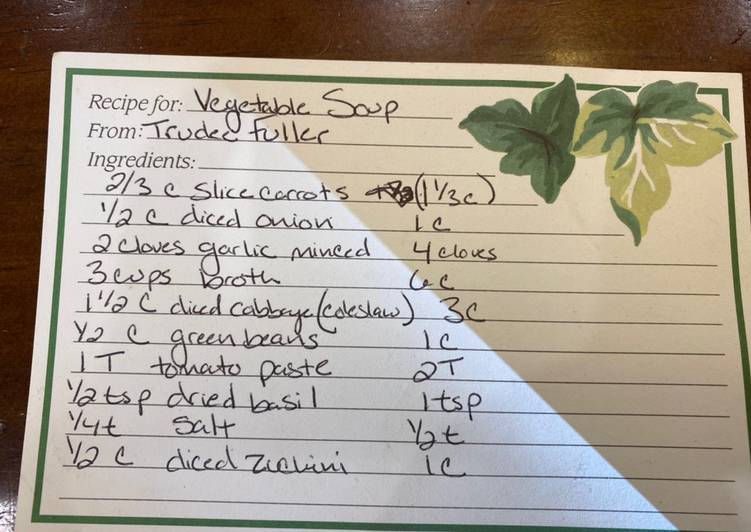 Recipe for: Vegetable Soup
From: Trudee Fuller
Ingredients:
2/3 c Slice carrots (1 1/3c)
1/2 c diced onion 1c
2 cloves garlic minced 4 cloves
3 cups broth 6c
1 1/2 C diced cabbage (coleslaw) 3c
1/2 C green beans 1c
1 T tomato paste 2T
1/2 tsp dried basil 1tsp
1/4t Salt 1/2t
1/2 C diced Zuchini 1c